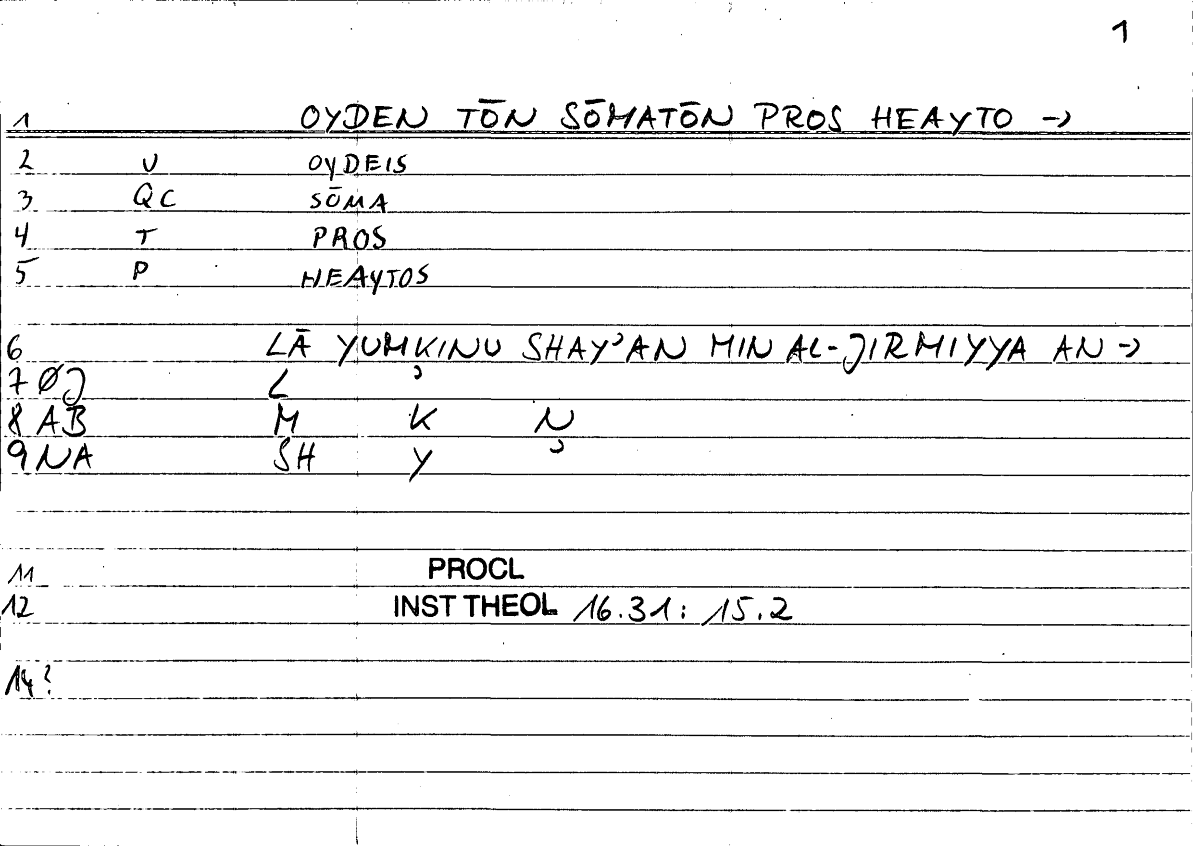 1
1 OYDEN TŌN SŌMATŌN PROS HEAYTO →
2 U OYDEIS
3 QC SŌMA
4 T PROS
5 P HEAYTOS
6 LĀ YUMKINU SHAY'AN MIN AL-JIRMIYYA AN →
7 ØJ L '
8 AB M K N
9 NA SH Y '
11 PROCL
12 INST THEOL 16.31: 15.2
14?